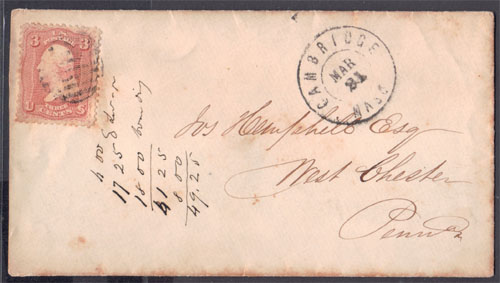 3 U.S. POSTAGE 3
THREE CENTS
CAMBRIDGE MASS
MAR
21
Jos Hemphill Esq
West Chester
Penna
4 00
17 25
18 00
41 25
8.00
49.25